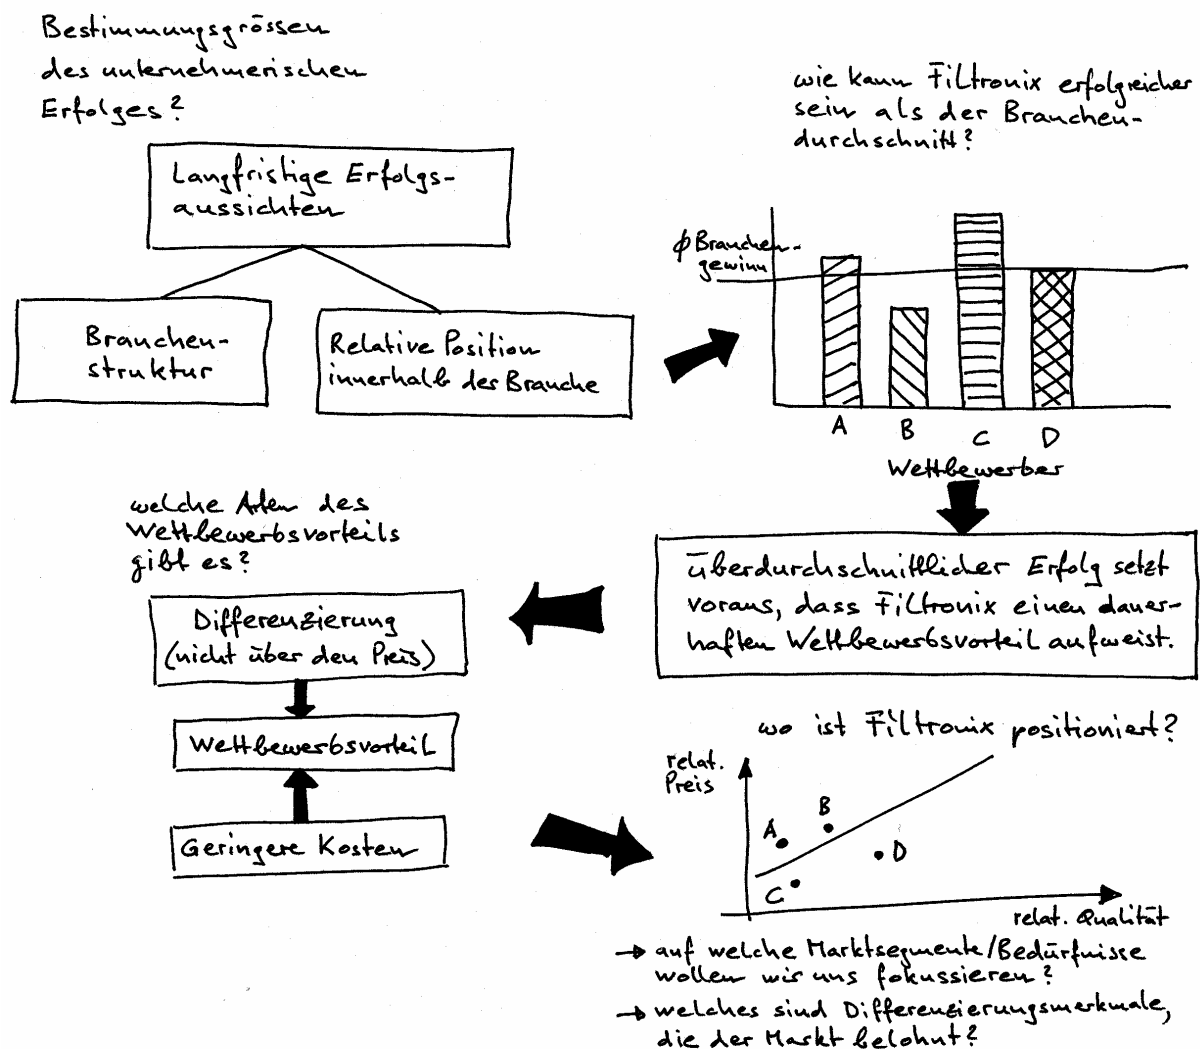 Bestimmungsgrössen
des unternehmerischen
Erfolges?
Langfristige Erfolgs-
aussichten
Branchen-
struktur
Relative Position
innerhalb der Branche
wie kann Filtronix erfolgreicher
sein als der Branchen-
durchschnitt?
ϕ Branchen-
gewinn
A B C D
Wettbewerber
überdurchschnittlicher Erfolg setzt
voraus, dass Filtronix einen dauer-
haften Wettbewerbsvorteil aufweist.
welche Arten des
Wettbewerbsvorteils
gibt es?
Differenzierung
(nicht über den Preis)
Wettbewerbsvorteil
Geringere Kosten
wo ist Filtronix positioniert?
relat.
Preis
A
B
C
D
relat. Qualität
→ auf welche Marktsegmente/Bedürfnisse
wollen wir uns fokussieren?
→ welches sind Differenzierungsmerkmale,
die der Markt belohnt?